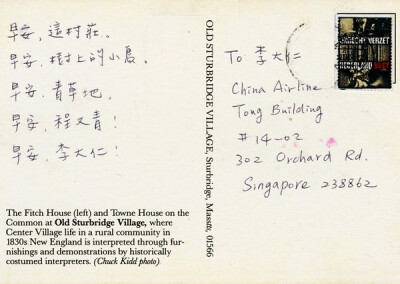 早安，這村莊。
早安，樹上的小鳥。
早安，青草地，
早安，程又青！
早安，李大仁！
The Fitch House (left) and Towne House on the
Common at Old Sturbridge Village, where
Center Village life in a rural community in
1830s New England is interpreted through fur-
nishings and demonstrations by historically
costumed interpreters. (Chuck Kidd photo).
OLD STURBRIDGE VILLAGE, Sturbridge, Mass. 01566
VERZET
NEDERLAND
To 李大仁
China Airline
Tong Building
#14-02
302 Orchard Rd.
Singapore 238862